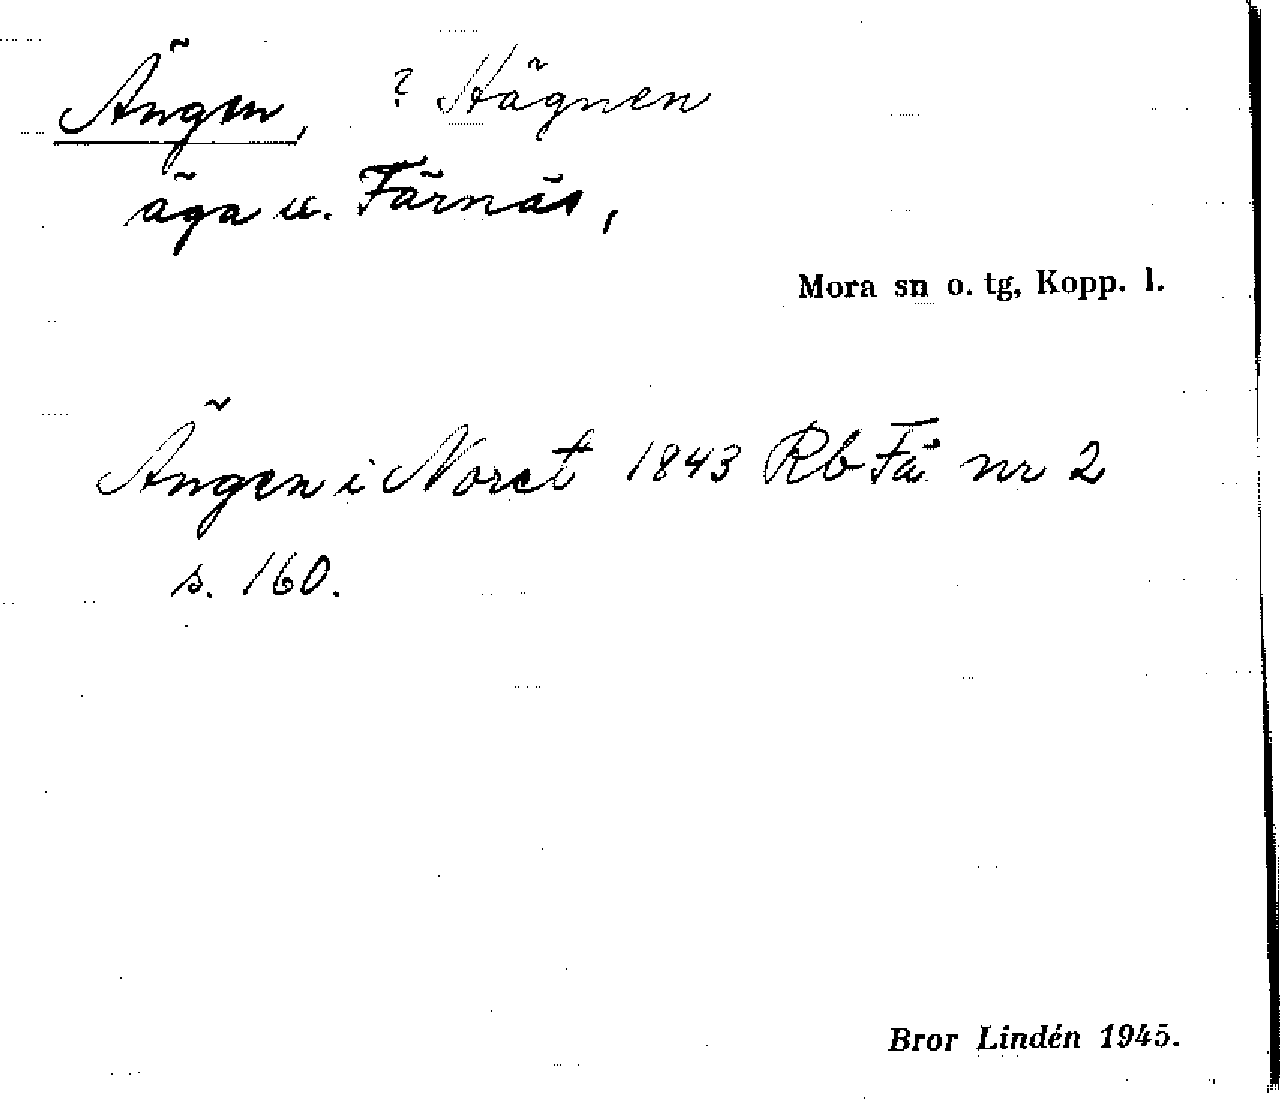 Ängen, ? Hägnen
äga u. Färnäs,
Mora sn o. tg, Kopp. l.
Ängen i Noret 1843 Rb Fä nr 2
s. 160.
Bror Lindén 1945.